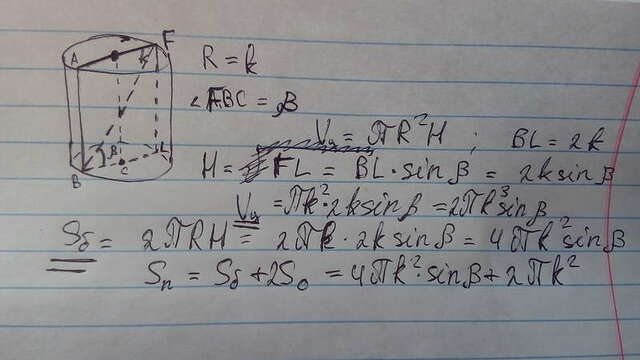 A F
R = k
∠FBC = β
B C L
Vц = πR²H ; BL = 2k
H = FL = BL · sin β = 2k sin β
Vц = πk² · 2k sin β = 2πk³ sin β
Sб = 2πRH = 2πk · 2k sin β = 4πk² sin β
Sп = Sб + 2S₀ = 4πk² · sin β + 2πk²